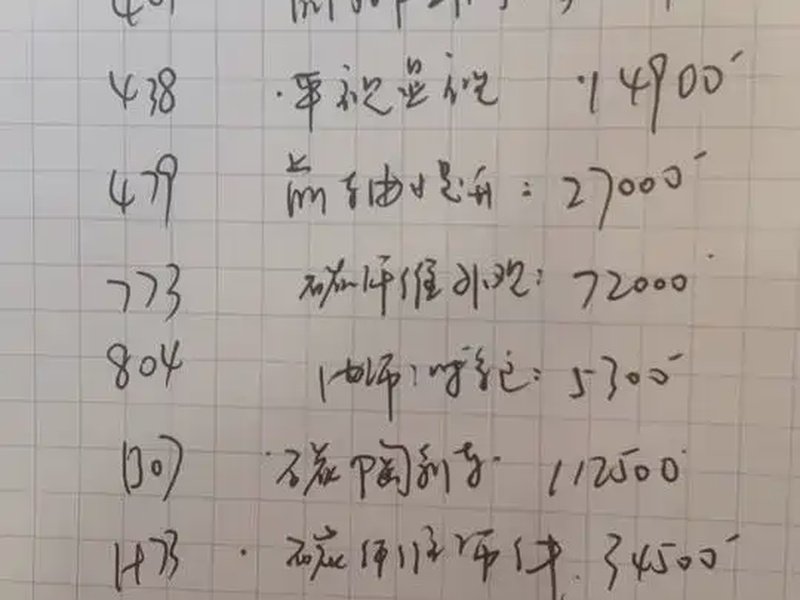 438 平视显视 14900
479 前轴提升：27000
773 碳纤维外观：72000
804 内饰：嘧红：5300
1307 碳陶刹车 112500
1473 碳纤维饰件 34500